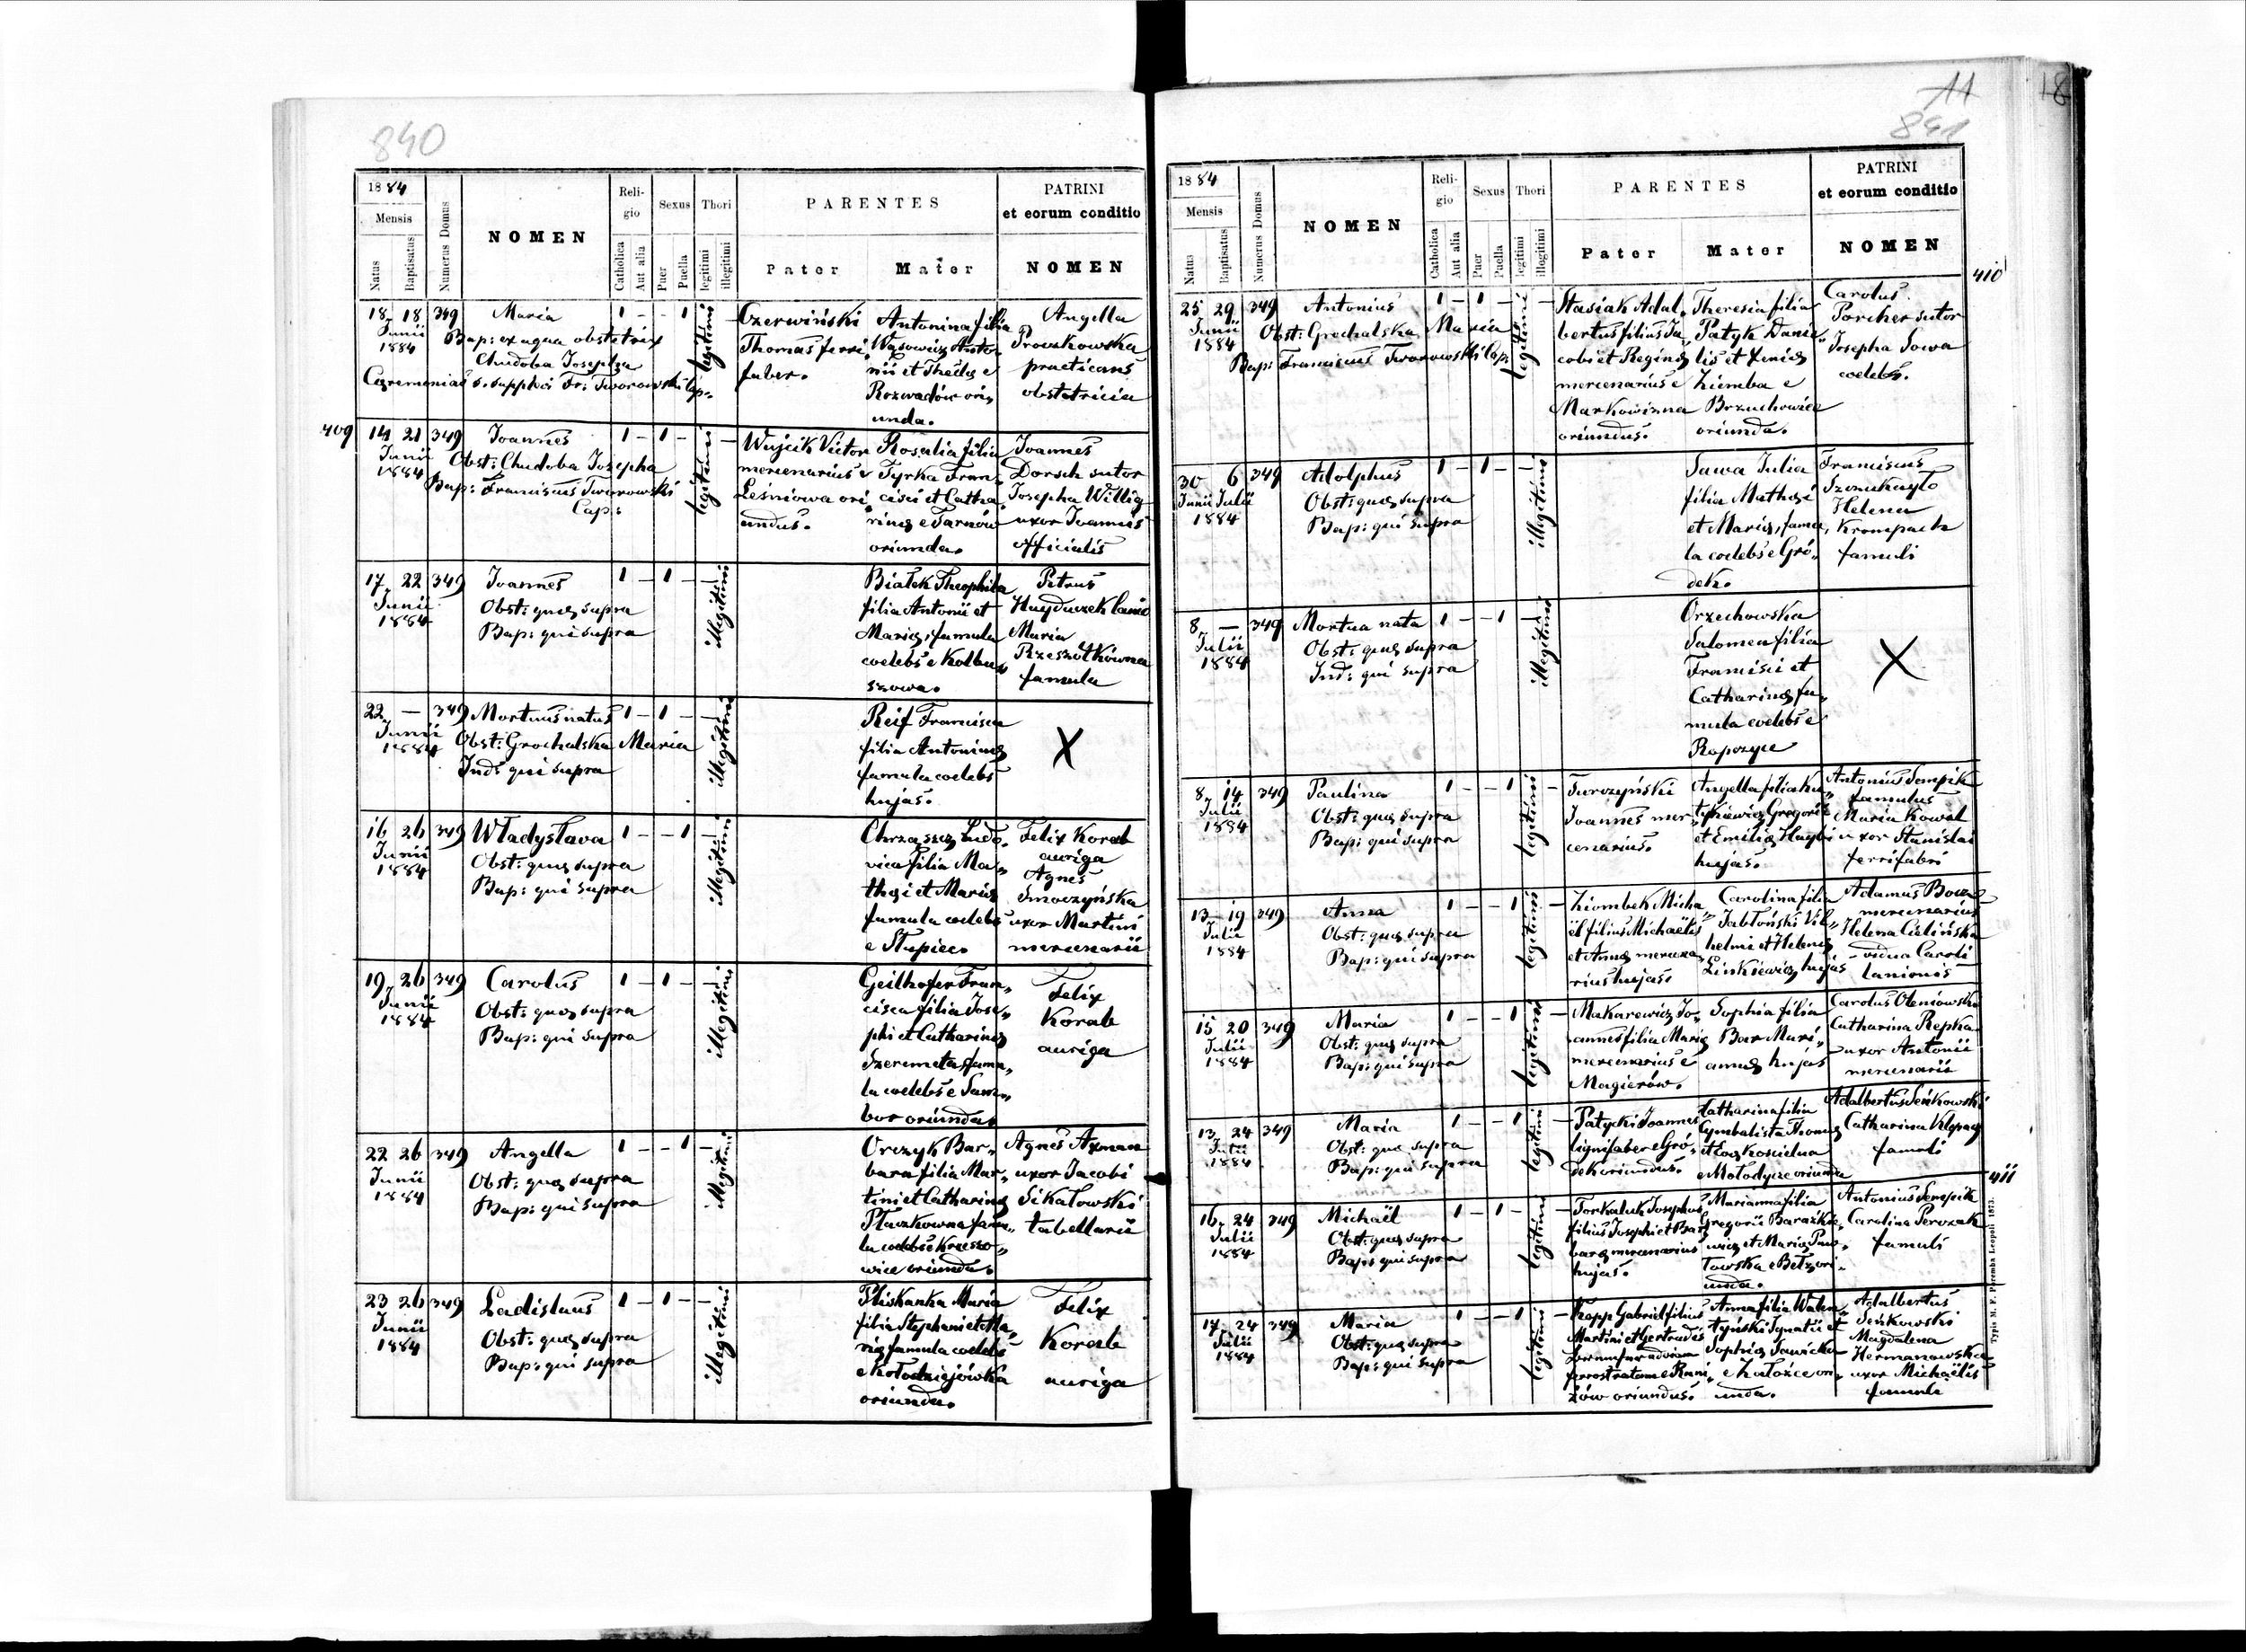 840
1884
Mensis
Natus
Baptisatus
Numerus Domus
NOMEN
Religio
Catholica
Aut alia
Sexus
Puer
Puella
Thori
legitimi
illegitimi
PARENTES
Pater
Mater
PATRINI
et eorum conditio
NOMEN
18 18 349
Junii
1884
Maria
Bap: ex aqua obstetrix
Chudoba Josepha
Caeremonias s. supplevi Fr: Tworowski Cap:
1 – – 1
legitimi
Czerwiński
Thomas ferri
faber.
Antonina filia
Wąsowicz Anto„
nii et Theclae e
Rozwadów ori„
unda.
Angella
Proszkowska
practicans
obstetricia
409
14 21 349
Junii
1884
Joannes
Obst: Chudoba Josepha
Bap: Franciscus Tworowski
Cap:
1 – 1 –
legitimi
Wujcik Victor
mercenarius e
Leśniowa ori
undus.
Rosalia filia
Tyrka Fran„
cisci et Catha„
rinae e Tarnów
oriunda.
Joannes
Dorsch sutor
Josepha Willig
uxor Joannis
officialis
17 22 349
Junii
1884
Joannes
Obst: quae supra
Bap: qui supra
1 – 1 –
illegitimi
Białek Theophila
filia Antonii et
Mariae, famula
coelebs e Kolbu„
szowa.
Petrus
Hayduczek lanio
Maria
Rzeszótkówna
famula
22 – 349
Junii
1884
Mortuus natus
Obst: Grochalska Maria
Ind: qui supra
1 – 1 –
illegitimi
Reif Francisca
filia Antoninae
famula coelebs
hujas.
X
16 26 349
Junii
1884
Władysława
Obst: quae supra
Bap: qui supra
1 – – 1
illegitimi
Chrząszcz Ludo„
vica filia Ma„
thaei et Mariae
famula coelebs
e Słupiec.
Felix Korab
auriga
Agnes
Smoczyńska
uxor Martini
mercenarii
19 26 349
Junii
1884
Carolus
Obst: quae supra
Bap: qui supra
1 – 1 –
illegitimi
Geilhofer Fran„
cisca filia Jose„
phi et Catharinae
Szeremeta, famu„
la coelebs e Sam„
bor oriunda.
Felix
Korab
auriga
22 26 349
Junii
1884
Angella
Obst: quae supra
Bap: qui supra
1 – – 1
illegitimi
Orczyk Bar„
bara filia Mar„
tini et Catharinae
Płaczkowna famu„
la coelebs e Krzeszo„
wice oriunda.
Agnes Axman
uxor Jacobi
Sikałowski
tabellarii
23 26 349
Junii
1884
Ladislaus
Obst: quae supra
Bap: qui supra
1 – 1 –
illegitimi
Pliskanka Maria
filia Stephani et Ma„
riae famula coelebs
e Kołodziejówka
oriunda.
Felix
Korab
auriga
11
18
841
1884
Mensis
Natus
Baptisatus
Numerus Domus
NOMEN
Religio
Catholica
Aut alia
Sexus
Puer
Puella
Thori
legitimi
illegitimi
PARENTES
Pater
Mater
PATRINI
et eorum conditio
NOMEN
410
25 29 349
Junii
1884
Antonius
Obst: Grochalska Maria
Bap: Franciscus Tworowski Cap:
1 – 1 –
legitimi
Stasiak Adal„
bertus filius Ja„
cobi et Reginae
mercenarius e
Markowizna
oriundus.
Theresia filia
Patyk Danie„
lis et Xeniae
Ziemba e
Brzuchowice
oriunda.
Carolus
Porcher sutor
Josepha Sowa
coelebs.
30 6 349
Junii Julii
1884
Adolphus
Obst: quae supra
Bap: qui supra
1 – 1 –
illegitimi
Sawa Julia
filia Mathaei
et Mariae, famu„
la coelebs e Gró„
dek.
Franciscus
Szmukayło
Helena
Krompach
famuli
8 – 349
Julii
1884
Mortua nata
Obst: quae supra
Ind: qui supra
1 – – 1
illegitimi
Orzechowska
Salomea filia
Francisci et
Catharinae fa„
mula coelebs e
Ropczyce
X
8 14 349
Julii
1884
Paulina
Obst: quae supra
Bap: qui supra
1 – – 1
legitimi
Turczyński
Joannes mer„
cenarius.
Angella filia Ku„
tykiewicz Gregorii
et Emiliae Haybi
hujas.
Antonius Sempik
famulus
Maria Kowal
uxor Stanislai
ferrifabri
13 19 349
Julii
1884
Anna
Obst: quae supra
Bap: qui supra
1 – – 1
legitimi
Ziombek Micha„
ël filius Michaëlis
et Annae mercena„
rius hujas.
Carolina filia
Jabłoński Vil„
helmi et Helenae
Linkiewicz hujas
Adamus Bocz
mercenarius
Helena Cielińska
vidua Caroli
lanionis
15 20 349
Julii
1884
Maria
Obst: quae supra
Bap: qui supra
1 – – 1
legitimi
Makarewicz Jo„
annes filia Mariae
mercenarius e
Magierów.
Sophia filia
Baer Mari„
annae hujas
Carolus Oleniowski
Catharina Repka
uxor Antonii
mercenarii
13 24 349
Julii
1884
Maria
Obst: quae supra
Bap: qui supra
1 – – 1
legitimi
Patycki Joannes
lignifaber e Gró„
dek oriundus.
Catharina filia
Cymbalista Thomae
et Evae Koscielna
e Mołodycze oriunda
Adalbertus Senkowski
Catharina Klypacz
famuli
411
16 24 349
Julii
1884
Michaël
Obst: quae supra
Bap: qui supra
1 – 1 –
legitimi
Torkaluk Josephus
filius Josephi et Bar„
barae mercenarius
hujas.
Marianna filia
Gregorii Barazkie„
wicz et Mariae Paw„
łowska e Bełz ori„
unda.
Antonius Sempik
Carolina Perozak
famuli
17 24 349
Julii
1884
Maria
Obst: quae supra
Bap: qui supra
1 – – 1
legitimi
Kopp Gabriel filius
Martini et Gertrudis
ferrostratam e Rani„
żów oriundus.
Anna filia Wolan„
tyński Ignatii et
Sophiae Sawicka
e Załoźce ori„
unda.
Adalbertus
Senkowski
Magdalena
Hermanowska
uxor Michaëlis
famuli
Typis M. F. Poremba Leopoli 1873.